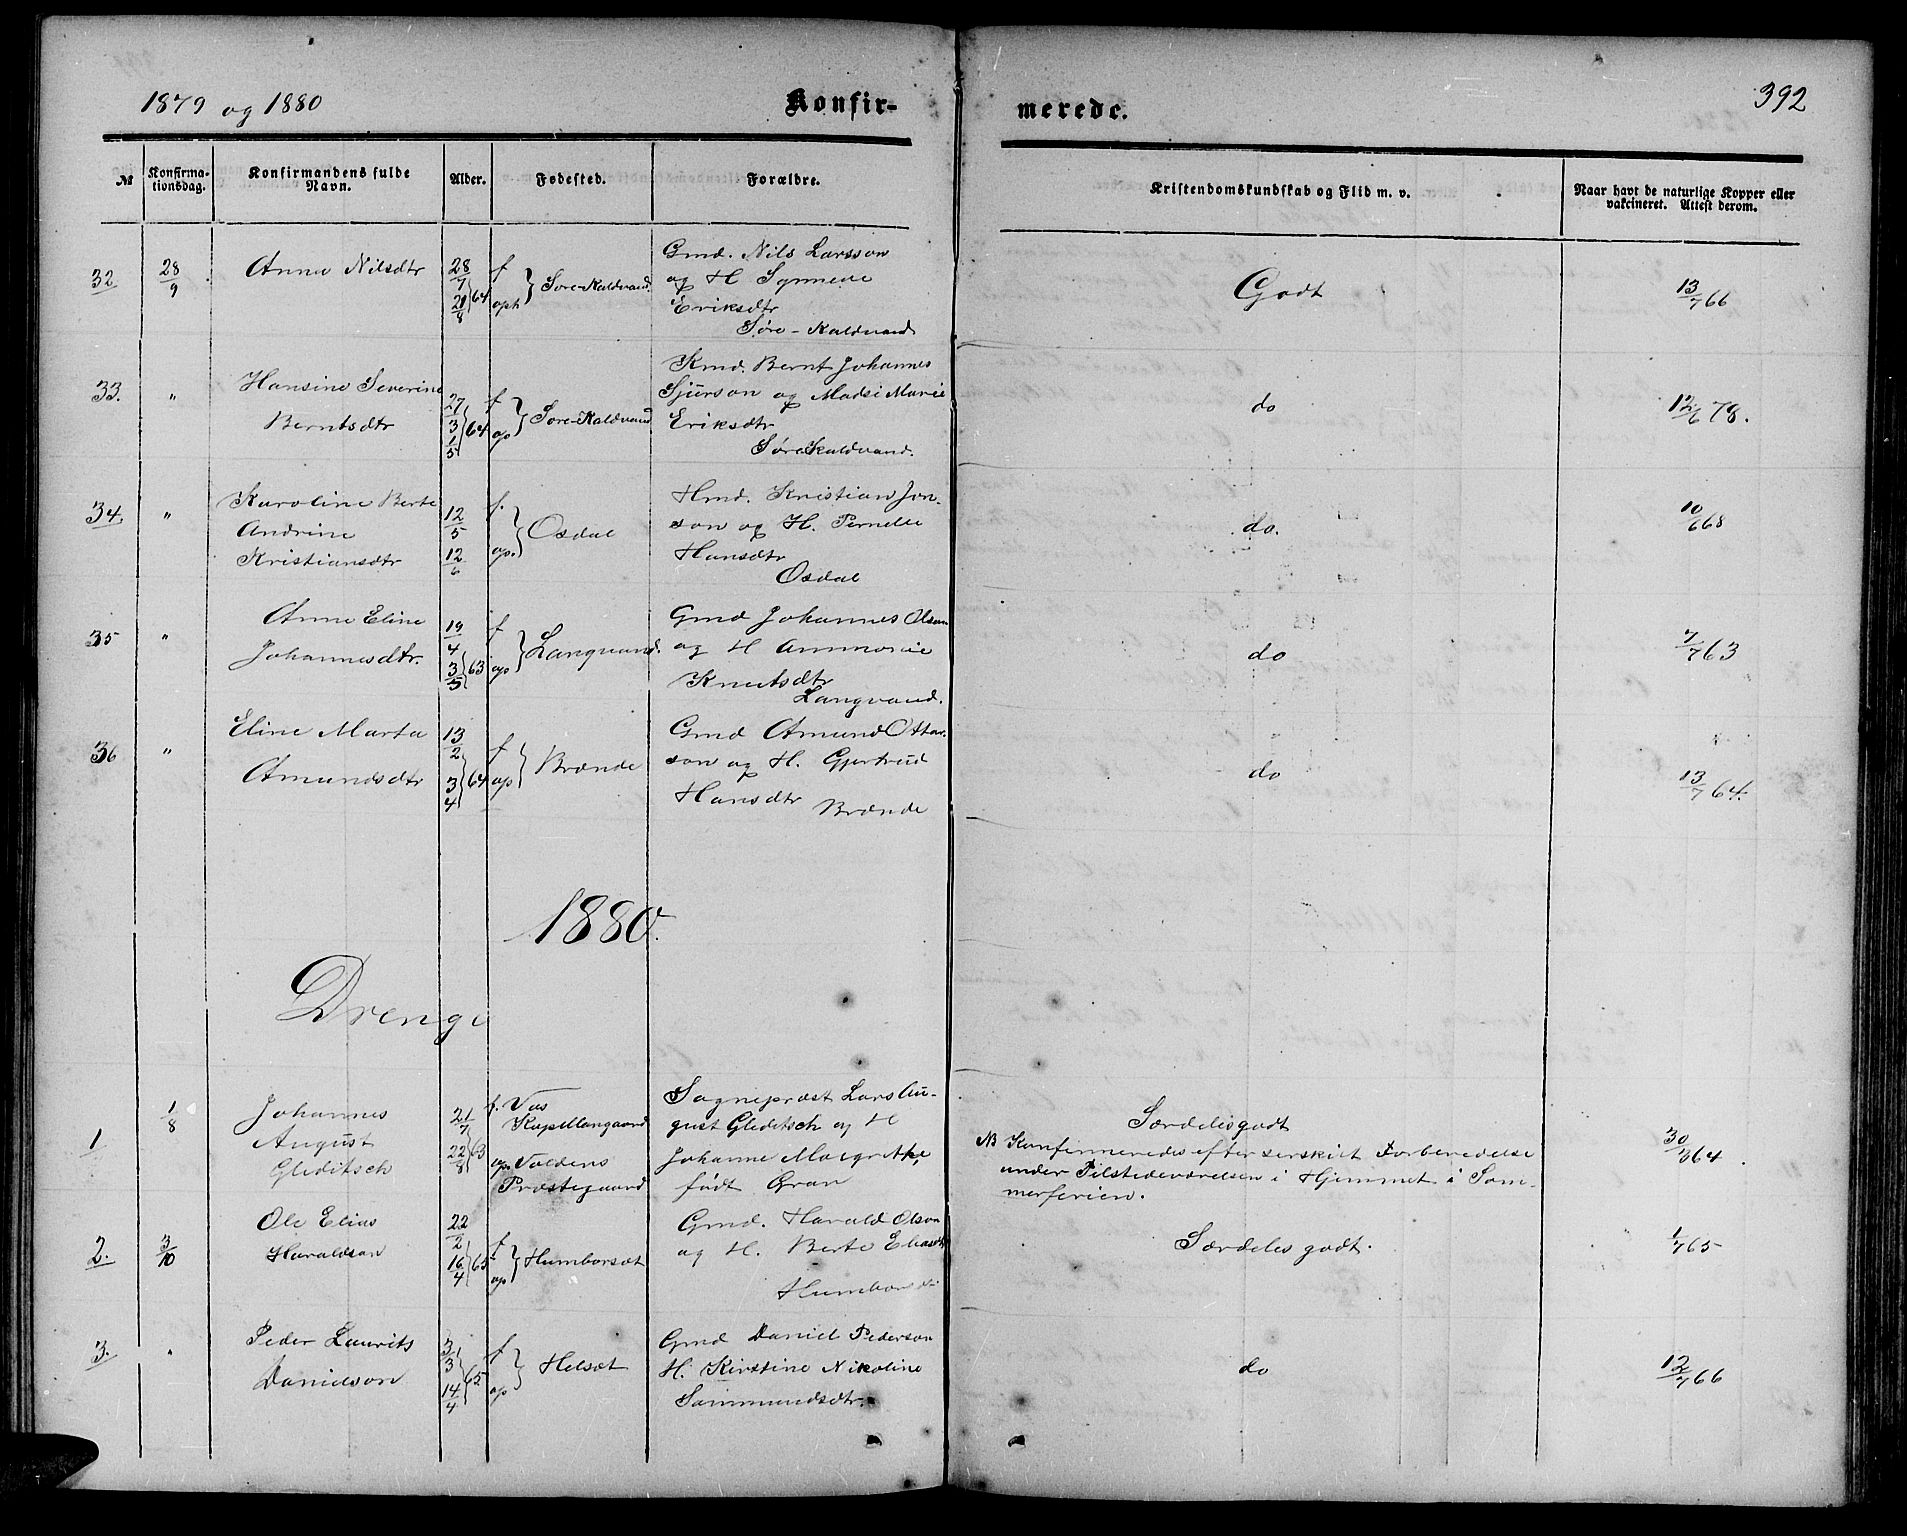 1879 og 1880
Konfir-
merede.
392
№
Konfirma-
tionsdag.
Konfirmandens fulde
Navn.
Alder.
Fødested.
Forældre.
Kristendomskundskab og Flid m. v.
Naar havt de naturlige Kopper eller
vakcineret. Attest derom.
32 28/9 Anna Nilsdtr 28/7 21/8 64 f oph Søre-Kaldvand.
Gmd. Nils Larsson
og H Synneve
Eriksdtr
Søre-Kaldvand
Godt 13/7 66
33. " Hansine Severine
Berntsdtr
27/3 1/5 64 f op Søre-Kaldvand
Kmd. Bernt Johannes
Sjurson og Madsi Marie
Eriksdtr
Søre Kaldvand.
do 12/6 78.
34. " Karoline Berte
Andrine
Kristiansdtr
12/5 12/6 f. op. Osdal
Hmd. Kristian Jon-
son og H. Pernelle
Hansdtr
Osdal
do. 10/6 68
35 " Anne Eline
Johannesdtr.
19/4 3/5 63 f op Langvand.
Gmd Johannes Olson
og H Annmarie
Knutsdtr
Langvand.
do 7/7 63
36 " Eline Marta
Amundsdtr
13/2 3/4 64 f op Brænde
Gmd Amund Ottar-
son og H. Gjertrud
Hansdtr
Brænde
do 13/7 64.
1880.
Drenge
1 1/8 Johannes
August
Gleditsch
21/7 22/8 63
f. Vos
Kapellangaard
op. Voldens
Præstegaard
Sogneprest Lars Au-
gust Gleditsch og H
Johanne Margrethe,
født Gran
Særdeles godt
NB Konfirmeredes efter serskilt Forberedelse
under Tilstedeværelsen i Hjemmet i Som-
merferien.
30/8 64.
2. 3/10 Ole Elias
Haraldson
22/2 16/4 65 f op Humborsæt
Gmd. Harald Olson
og H. Berte Eliasdtr
Humborsæt
Særdeles godt. 1/7 65
3. " Peder Laurits
Danielson
3/3 14/4 65 f op Helsæt
Gmd Daniel Pederson
H. Kirstine Nikoline
Sammundsdtr.
do 12/7 66